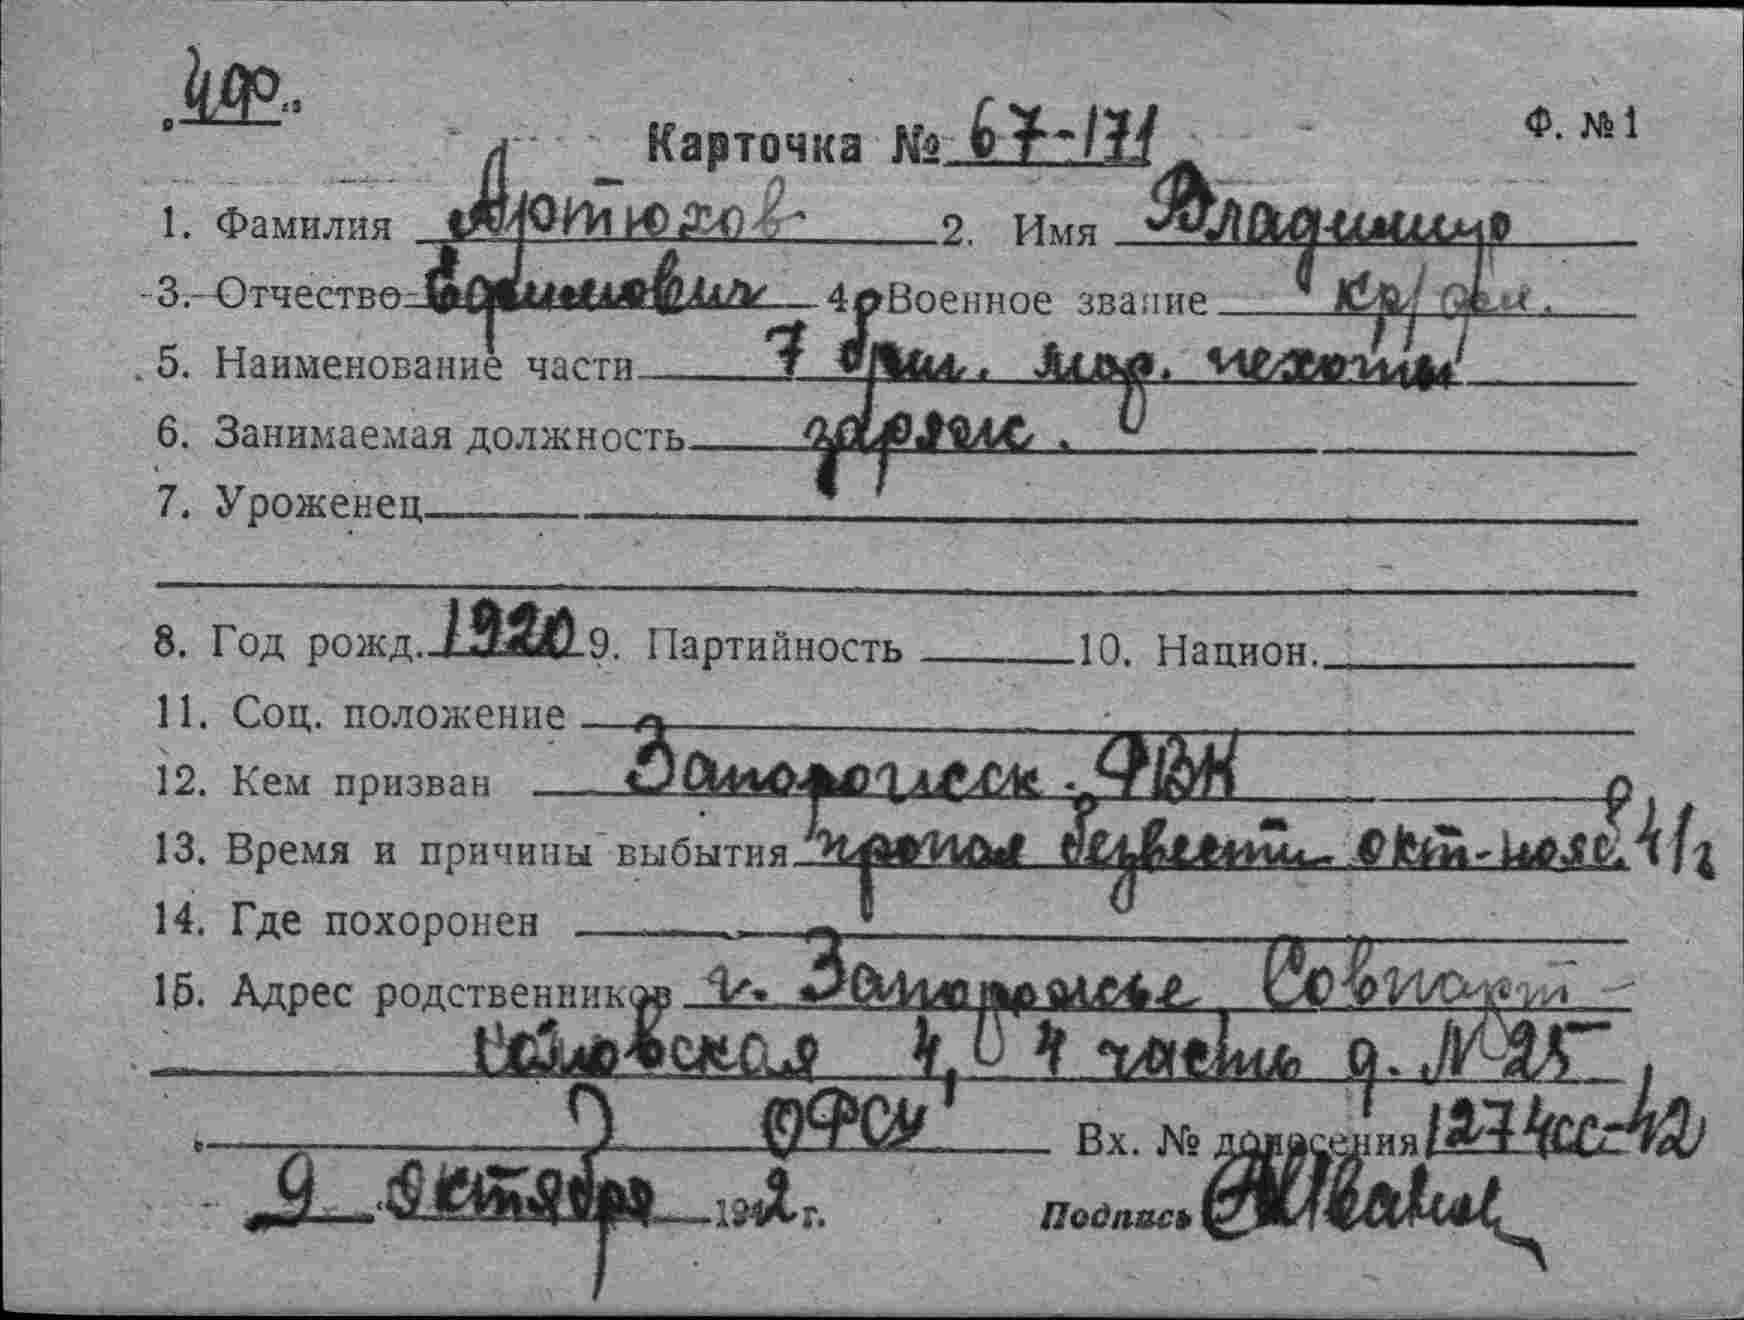 Ф. №1
Карточка № 67-171
1. Фамилия Артюхов 2. Имя Владимир
3. Отчество Ефимович 4. Военное звание кр/фл.
5. Наименование части 7 бриг. мор. пехоты
6. Занимаемая должность заряж.
7. Уроженец
8. Год рожд. 1920 9. Партийность 10. Национ.
11. Соц. положение
12. Кем призван Запорожск. РВК
13. Время и причины выбытия пропал безвести окт-нояб. 41 г
14. Где похоронен
15. Адрес родственников г. Запорожье
4, 4 часть д. № 25
Вх. № донесения 1274сс-42
9 октября 1942 г. Подпись